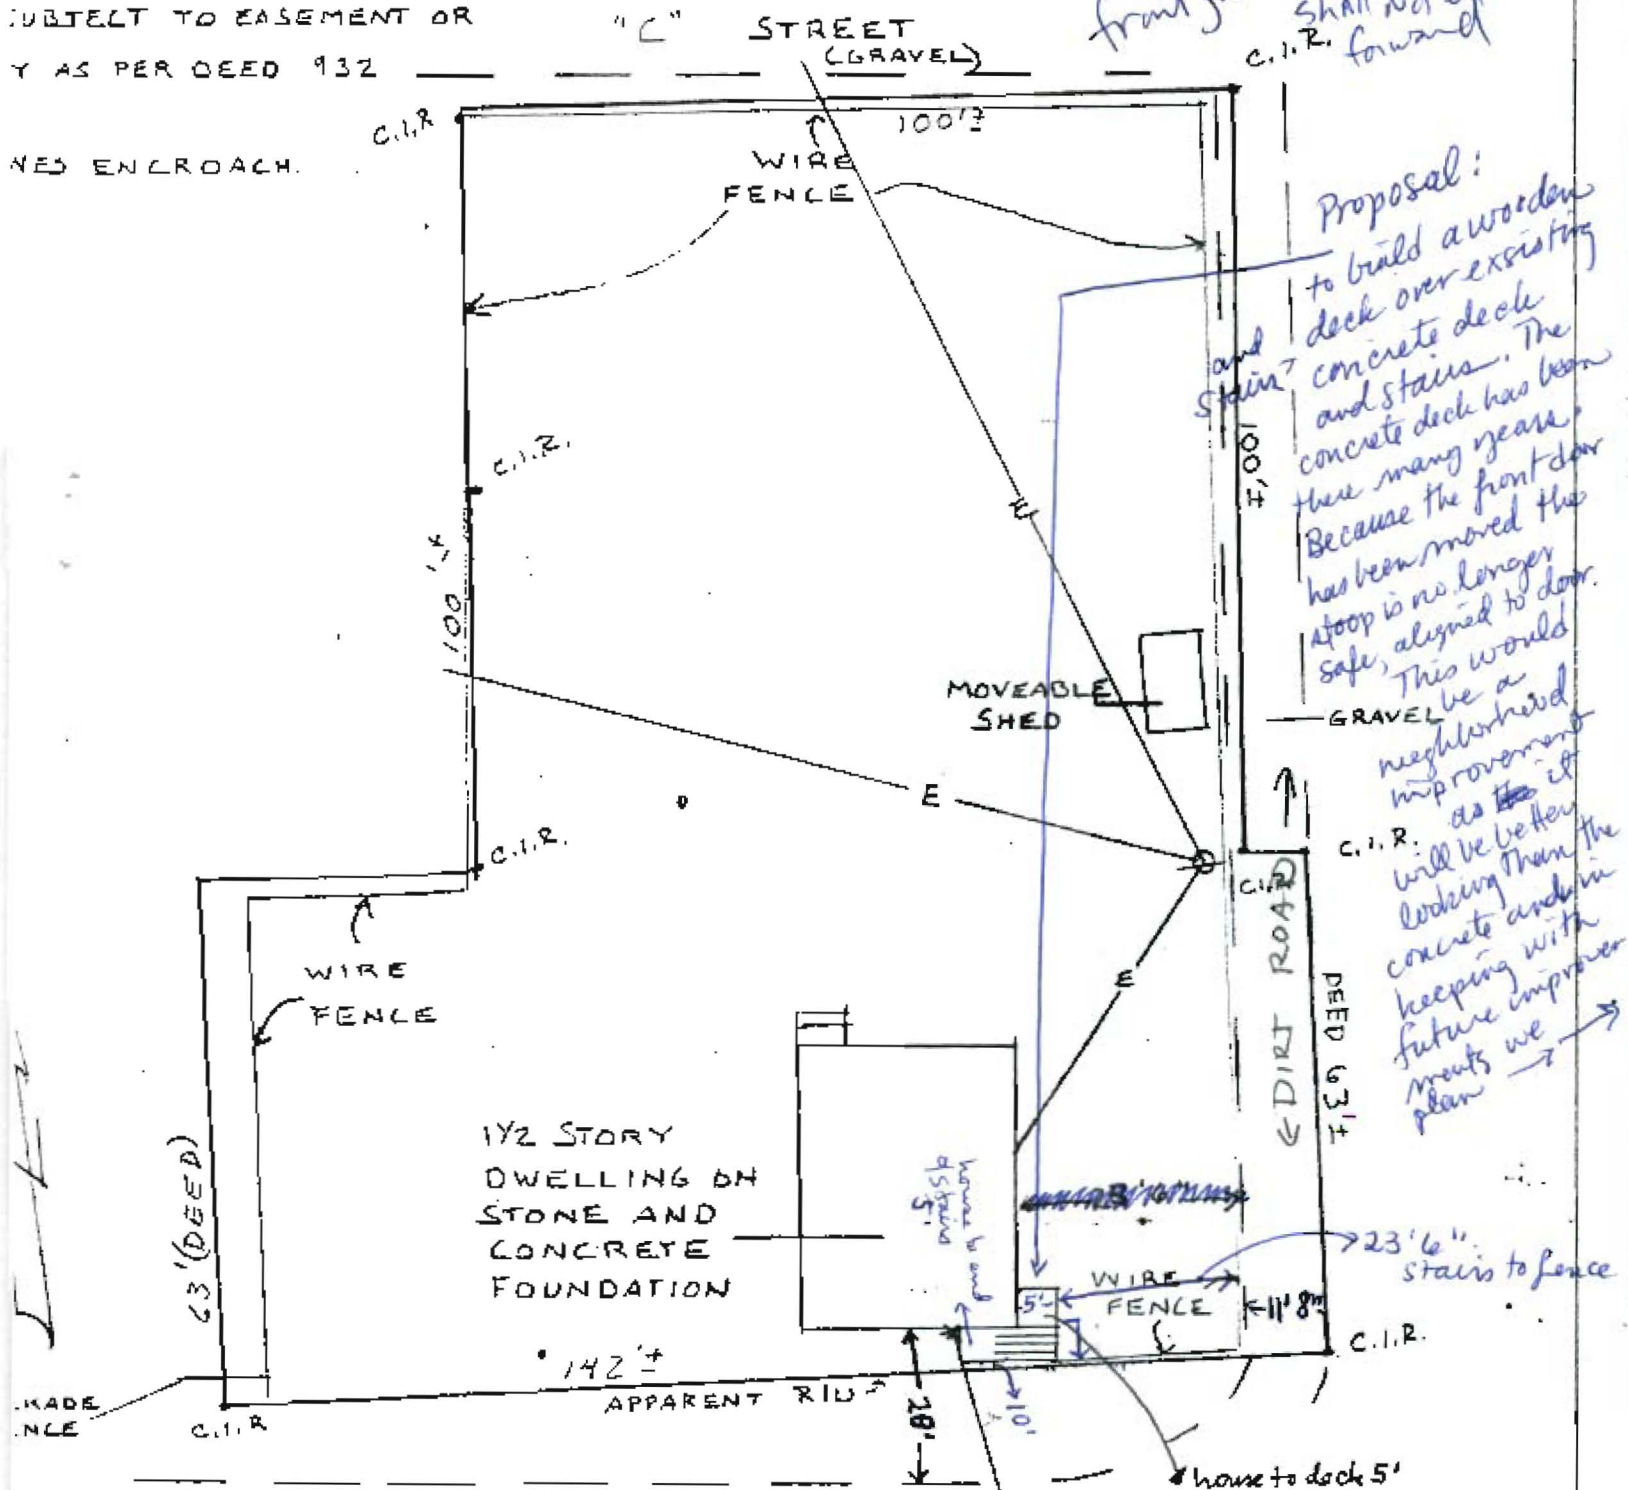 SUBJECT TO EASEMENT OR
Y AS PER DEED 932
NES ENCROACH.
"C" STREET
(GRAVEL)
front
SHALL NOT
forward
C.I.R.
C.I.R
100'±
WIRE
FENCE
Proposal:
to build a wooden
deck over exsisting
and stairs
concrete deck
and stairs. The
concrete deck has been
there many years.
Because the front door
has been moved the
stoop is no longer
safe, aligned to door.
This would
be a
neighborhood
improvement
as it
will be better
looking than the
concrete and in
keeping with
future improve
ments we
plan
C.I.R.
100'±
100'±
E
MOVEABLE
SHED
GRAVEL
E
C.I.R.
C.I.R.
C.I.R.
DIRT ROAD
E
WIRE
FENCE
DEED 63'±
63'(DEED)
1 1/2 STORY
DWELLING ON
STONE AND
CONCRETE
FOUNDATION
house to end
of stairs
5'
23'6"
stairs to fence
5'
WIRE
FENCE
11' 8"
C.I.R.
142'±
APPARENT R/W
28'
10'
KADE
NCE
C.I.R
house to deck 5'